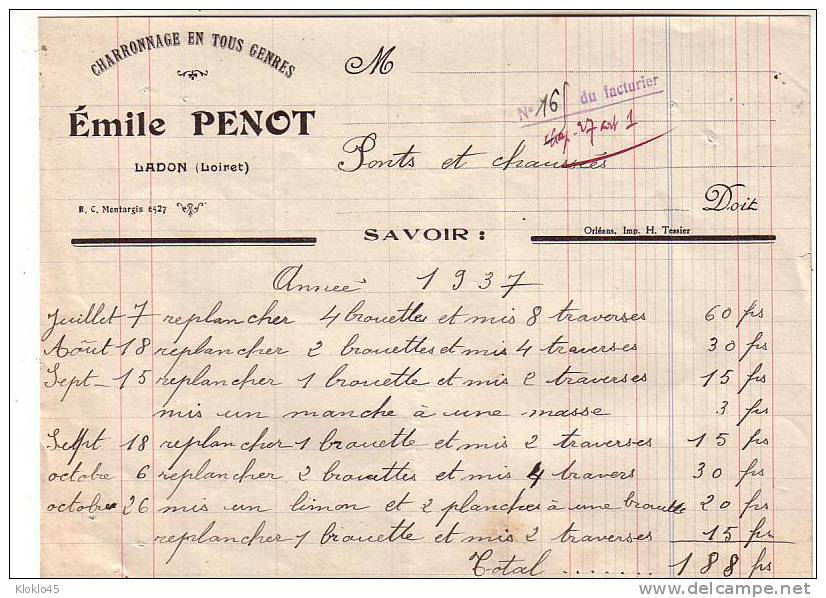 CHARRONNAGE EN TOUS GENRES
Émile PENOT
LADON (Loiret)
R. C. Montargis 6527
M
N° 16 du facturier
27 art 1
Ponts et chaussées
Doit
SAVOIR :
Orléans, Imp. H. Tessier
Année 1937
Juillet 7 replancher 4 brouettes et mis 8 traverses 60 frs
Août 18 replancher 2 brouettes et mis 4 traverses 30 frs
Sept 15 replancher 1 brouette et mis 2 traverses 15 frs
mis un manche à une masse 3 frs
Sept 18 replancher 1 brouette et mis 2 traverses 15 frs
octobre 6 replancher 2 brouettes et mis 4 travers 30 frs
octobre 26 mis un limon et 2 planches à une brouette 20 frs
replancher 1 brouette et mis 2 traverses 15 frs
Total ....... 188 frs
Kloklo45
delcampe.net